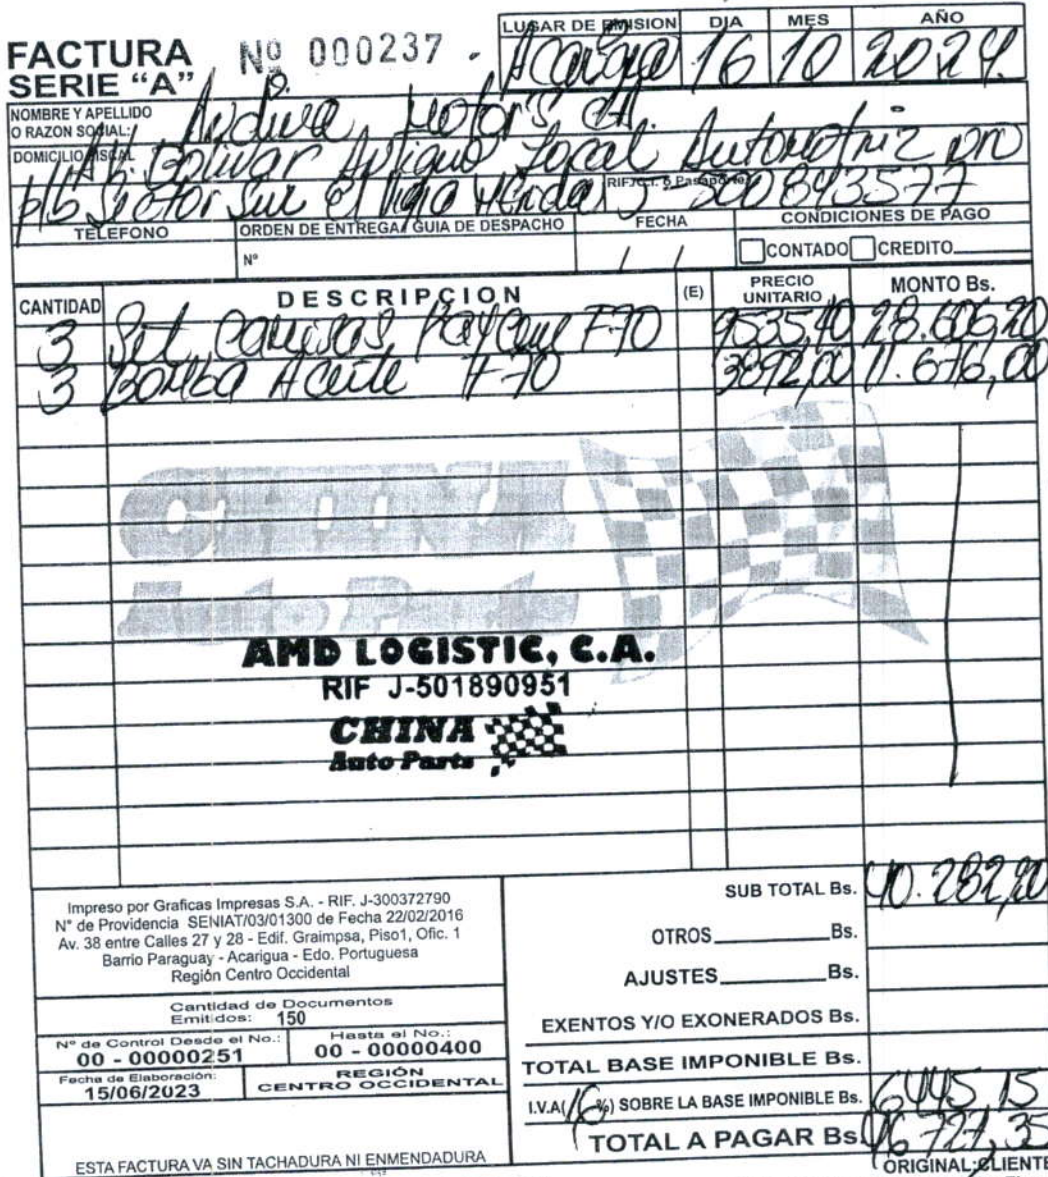 LUGAR DE EMISION DIA MES AÑO
FACTURA Nº 000237
SERIE “A”
Acarigua 16 10 2024
NOMBRE Y APELLIDO
O RAZON SOCIAL: Motor's CA.
DOMICILIO FISCAL Av. Bolivar Antiguo Local Automotriz
Sector Sur El Vigia Merida RIF/C.I. ó Pasaporte: J-500843577
TELEFONO ORDEN DE ENTREGA / GUIA DE DESPACHO FECHA CONDICIONES DE PAGO
N° / / CONTADO CREDITO
CANTIDAD DESCRIPCION (E) PRECIO UNITARIO MONTO Bs.
3 Set camisas F-70 9535,40 28.606,20
3 Bomba Aceite F-70 3892,00 11.676,00
AMD LOGISTIC, C.A.
RIF J-501890951
CHINA
Auto Parts
Impreso por Graficas Impresas S.A. - RIF. J-300372790
N° de Providencia SENIAT/03/01300 de Fecha 22/02/2016
Av. 38 entre Calles 27 y 28 - Edif. Graimpsa, Piso1, Ofic. 1
Barrio Paraguay - Acarigua - Edo. Portuguesa
Región Centro Occidental
Cantidad de Documentos
Emitidos: 150
N° de Control Desde el No.: Hasta el No.:
00 - 00000251 00 - 00000400
Fecha de Elaboración: REGIÓN
15/06/2023 CENTRO OCCIDENTAL
ESTA FACTURA VA SIN TACHADURA NI ENMENDADURA
SUB TOTAL Bs. 40.282,20
OTROS Bs.
AJUSTES Bs.
EXENTOS Y/O EXONERADOS Bs.
TOTAL BASE IMPONIBLE Bs.
I.V.A(16%) SOBRE LA BASE IMPONIBLE Bs. 6445,15
TOTAL A PAGAR Bs. 46.727,35
ORIGINAL:CLIENTE